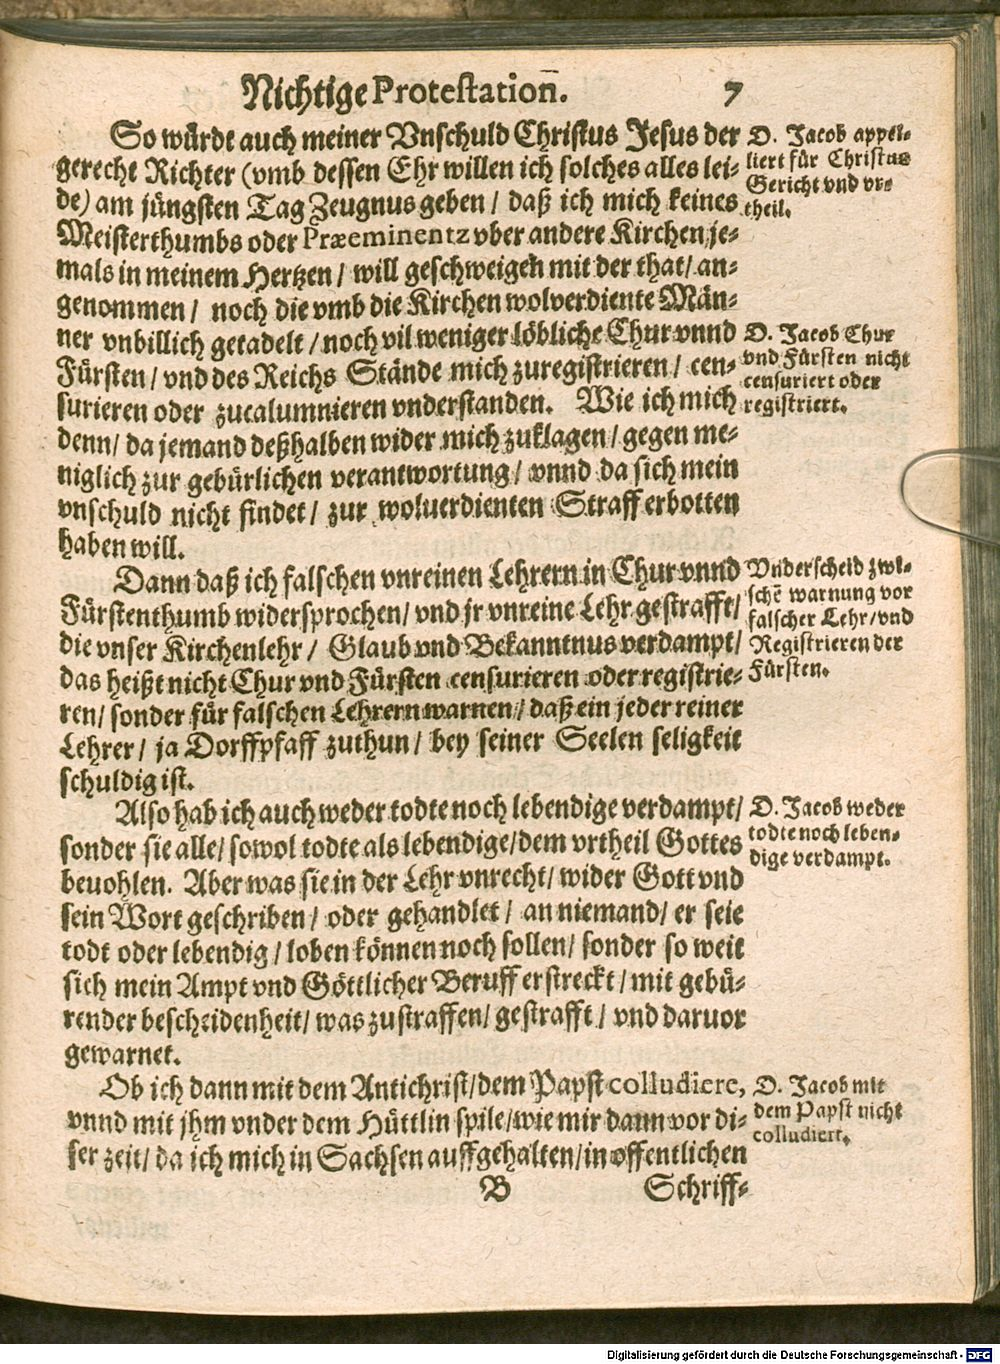 Nichtige Protestation̄. 7
So würde auch meiner Vnschuld Christus Jesus der
gerecht Richter (vmb dessen Ehr willen ich solches alles lei-
de) am jüngsten Tag Zeugnus geben / daß ich mich keines
Meisterthumbs oder Præeminentz vber andere Kirchen je-
mals in meinem Hertzen / will geschweigen mit der that / an-
genommen / noch die vmb die Kirchen wolverdiente Män-
ner vnbillich getadelt / noch vil weniger löbliche Chur vnnd
Fürsten / vnd des Reichs Stände mich zuregistrieren / cen-
surieren oder zucalumnieren vnderstanden. Wie ich mich
denn / da jemand deßhalben wider mich zuklagen / gegen me-
niglich zur gebürlichen verantwortung / vnnd da sich mein
vnschuld nicht findet / zur woluerdienten Straff erbotten
haben will.
D. Jacob appel-
liert für Christus
Gericht vnd vr-
theil.
D. Jacob Chur
vnd Fürsten nicht
censuriert oder
registriert.
Dann daß ich falschen vnreinen Lehrern in Chur vnnd
Fürstenthumb widersprochen / vnd jr vnreine Lehr gestrafft /
die vnser Kirchenlehr / Glaub vnd Bekanntnus verdampt /
das heißt nicht Chur vnd Fürsten censurieren oder registrie-
ren / sonder für falschen Lehrern warnen / daß ein jeder reiner
Lehrer / ja Dorffpfaff zuthun / bey seiner Seelen seligkeit
schuldig ist.
Vnderscheid zwi-
schē warnung vor
falscher Lehr / vnd
Registrieren der
Fürsten.
Also hab ich auch weder todte noch lebendige verdampt /
sonder sie alle / sowol todte als lebendige / dem vrtheil Gottes
beuohlen. Aber was sie in der Lehr vnrecht / wider Gott vnd
sein Wort geschriben / oder gehandlet / an niemand / er seie
todt oder lebendig / loben können noch sollen / sonder so weit
sich mein Ampt vnd Göttlicher Beruff erstreckt / mit gebü-
render bescheidenheit / was zustraffen / gestrafft / vnd daruor
gewarnet.
D. Jacob weder
todte noch leben-
dige verdampt.
Ob ich dann mit dem Antichrist / dem Papst colludiere,
vnnd mit jhm vnder dem Hüttlin spile / wie mir dann vor di-
ser zeit / da ich mich in Sachsen auffgehalten / in offentlichen
D. Jacob mit
dem Papst nicht
colludiert.
B Schriff-
Digitalisierung gefördert durch die Deutsche Forschungsgemeinschaft - DFG